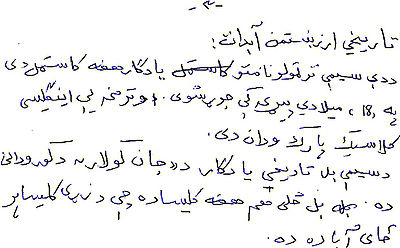 -۳-
تاریخي ارزښتمن آبدات:
ددې سیمې ترټولو نامتو یادګار هغه کاستمل دی
په ,18, میلادي پېړۍ کې جوړ شوی. او ترڅنګ یې انګلیسي
کلاسیک پارک ودان دی.
دسیمې بل تاریخي یادګار د جان کولار به د کور وداني
ده. بل ځلی هم هغه کلیسا ده چې د نړۍ کلیسا پر
ځای آباده ده.